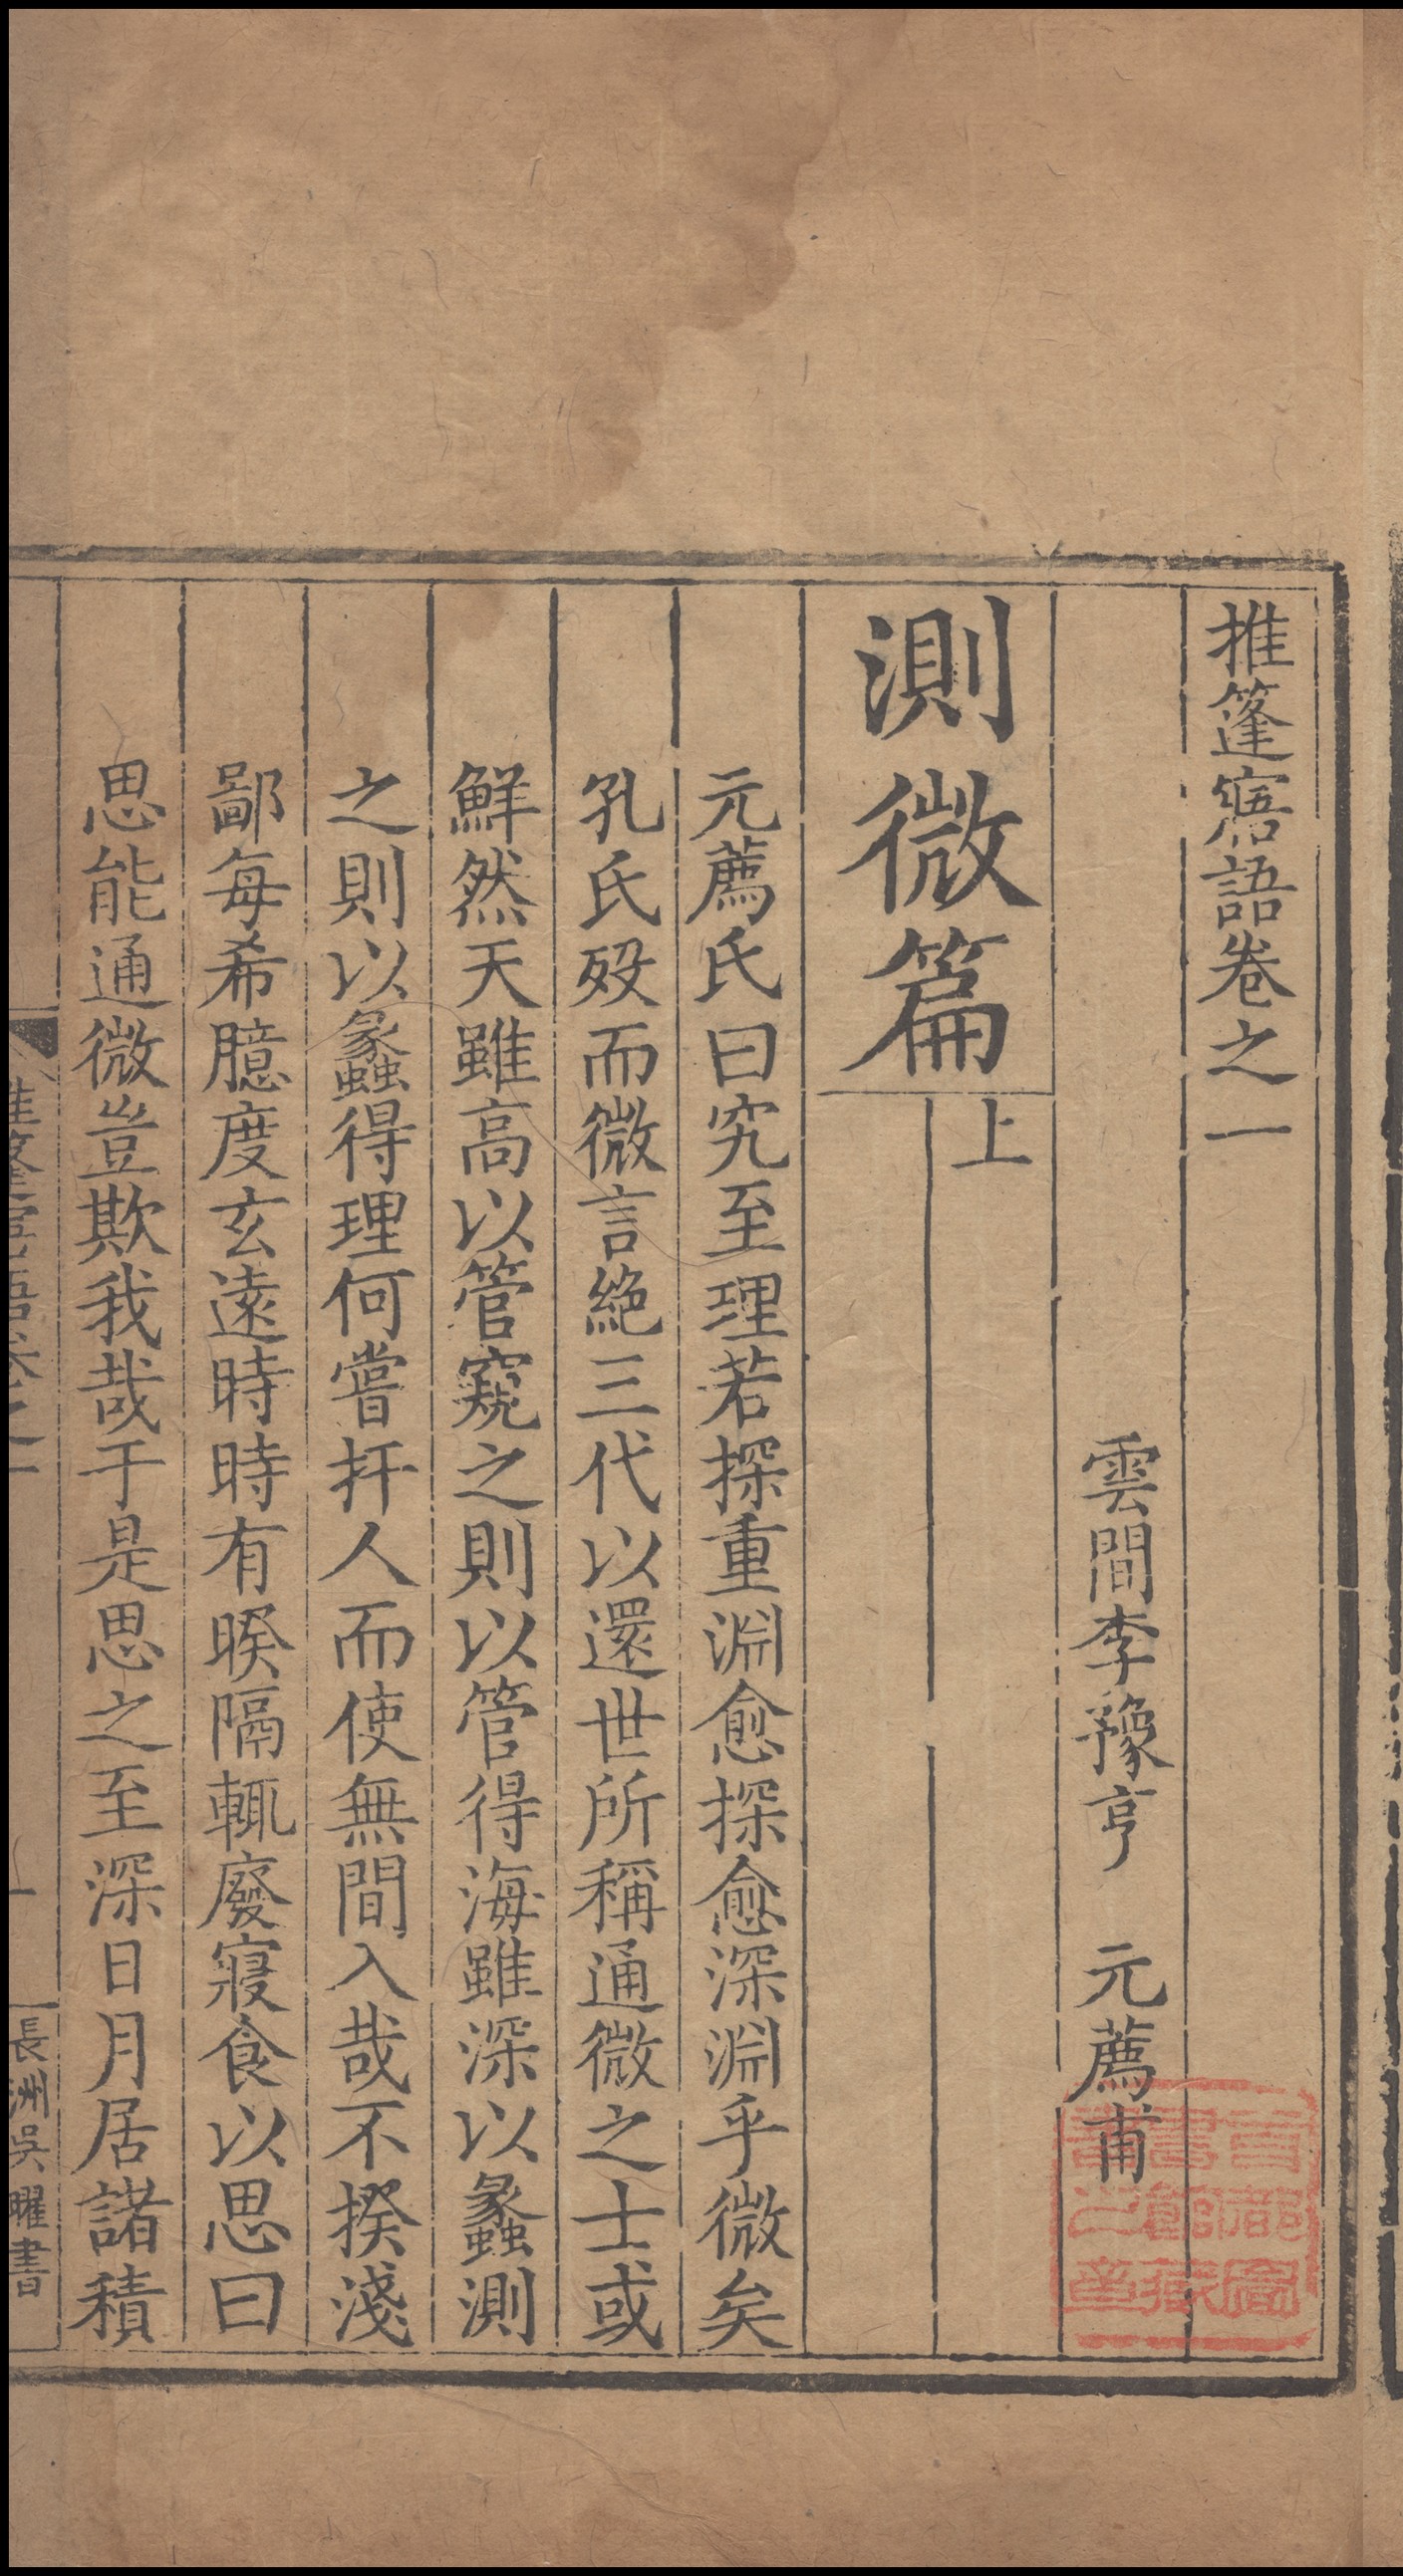 推篷寤語卷之一
雲間李豫亨 元薦甫
測微篇
上
元薦氏曰究至理若探重淵愈探愈深淵乎微矣
孔氏歿而微言絶三代以還世所稱通微之士或
鮮然天雖高以管窺之則以管得海雖深以蠡測
之則以蠡得理何嘗扞人而使無間入哉不揆淺
鄙每希臆度玄遠時時有暌隔輒廢寢食以思曰
思能通微豈欺我哉于是思之至深日月居諸積
推篷寤語卷之一
一
長洲吳曜書
京都圖書館藏書之章